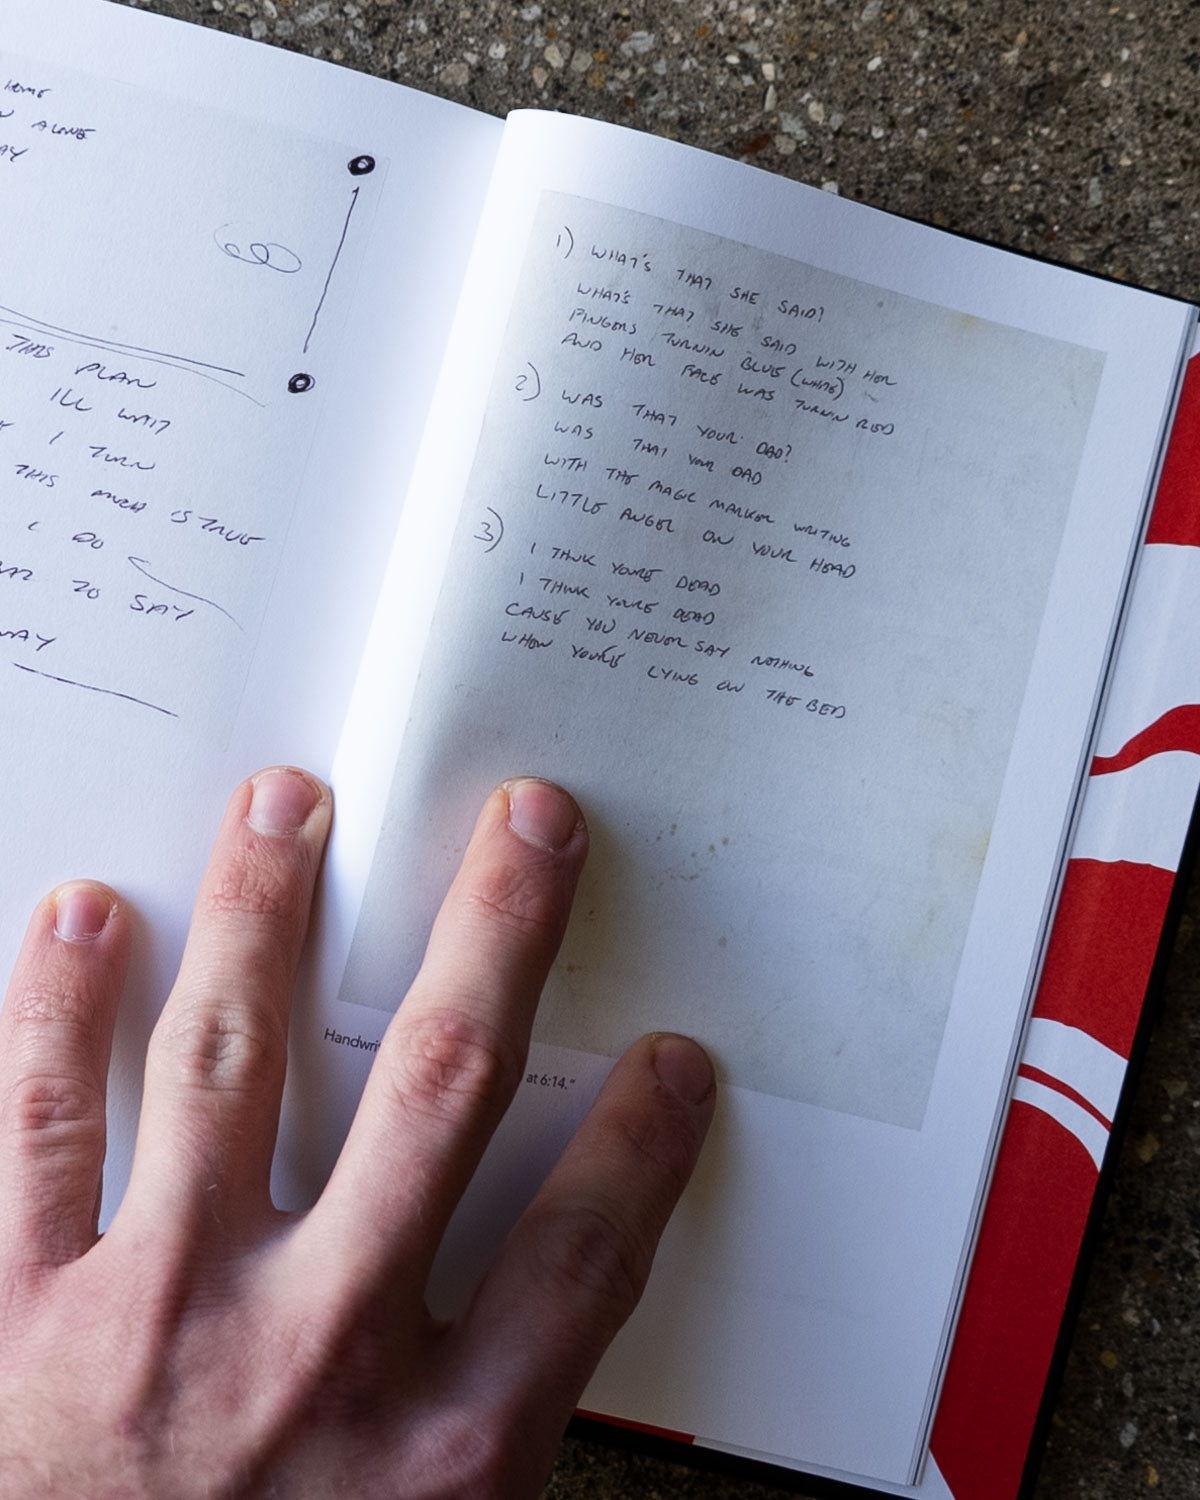 HOME
ALONE
THIS PLAN
ILL WAIT
I TURN
THIS MUCH IS TRUE
I DO
TO SAY
WAY
1) WHAT'S THAT SHE SAID?
WHAT'S THAT SHE SAID WITH HER
FINGERS TURNIN BLUE (WHITE)
AND HER FACE WAS TURNIN RED
2) WAS THAT YOUR DAD?
WAS THAT YOUR DAD
WITH THE MAGIC MARKER WRITING
LITTLE ANGEL ON YOUR HEAD
3) I THINK YOU'RE DEAD
I THINK YOU'RE DEAD
CAUSE YOU NEVER SAY NOTHING
WHEN YOU'RE LYING ON THE BED
Handwri
at 6:14."